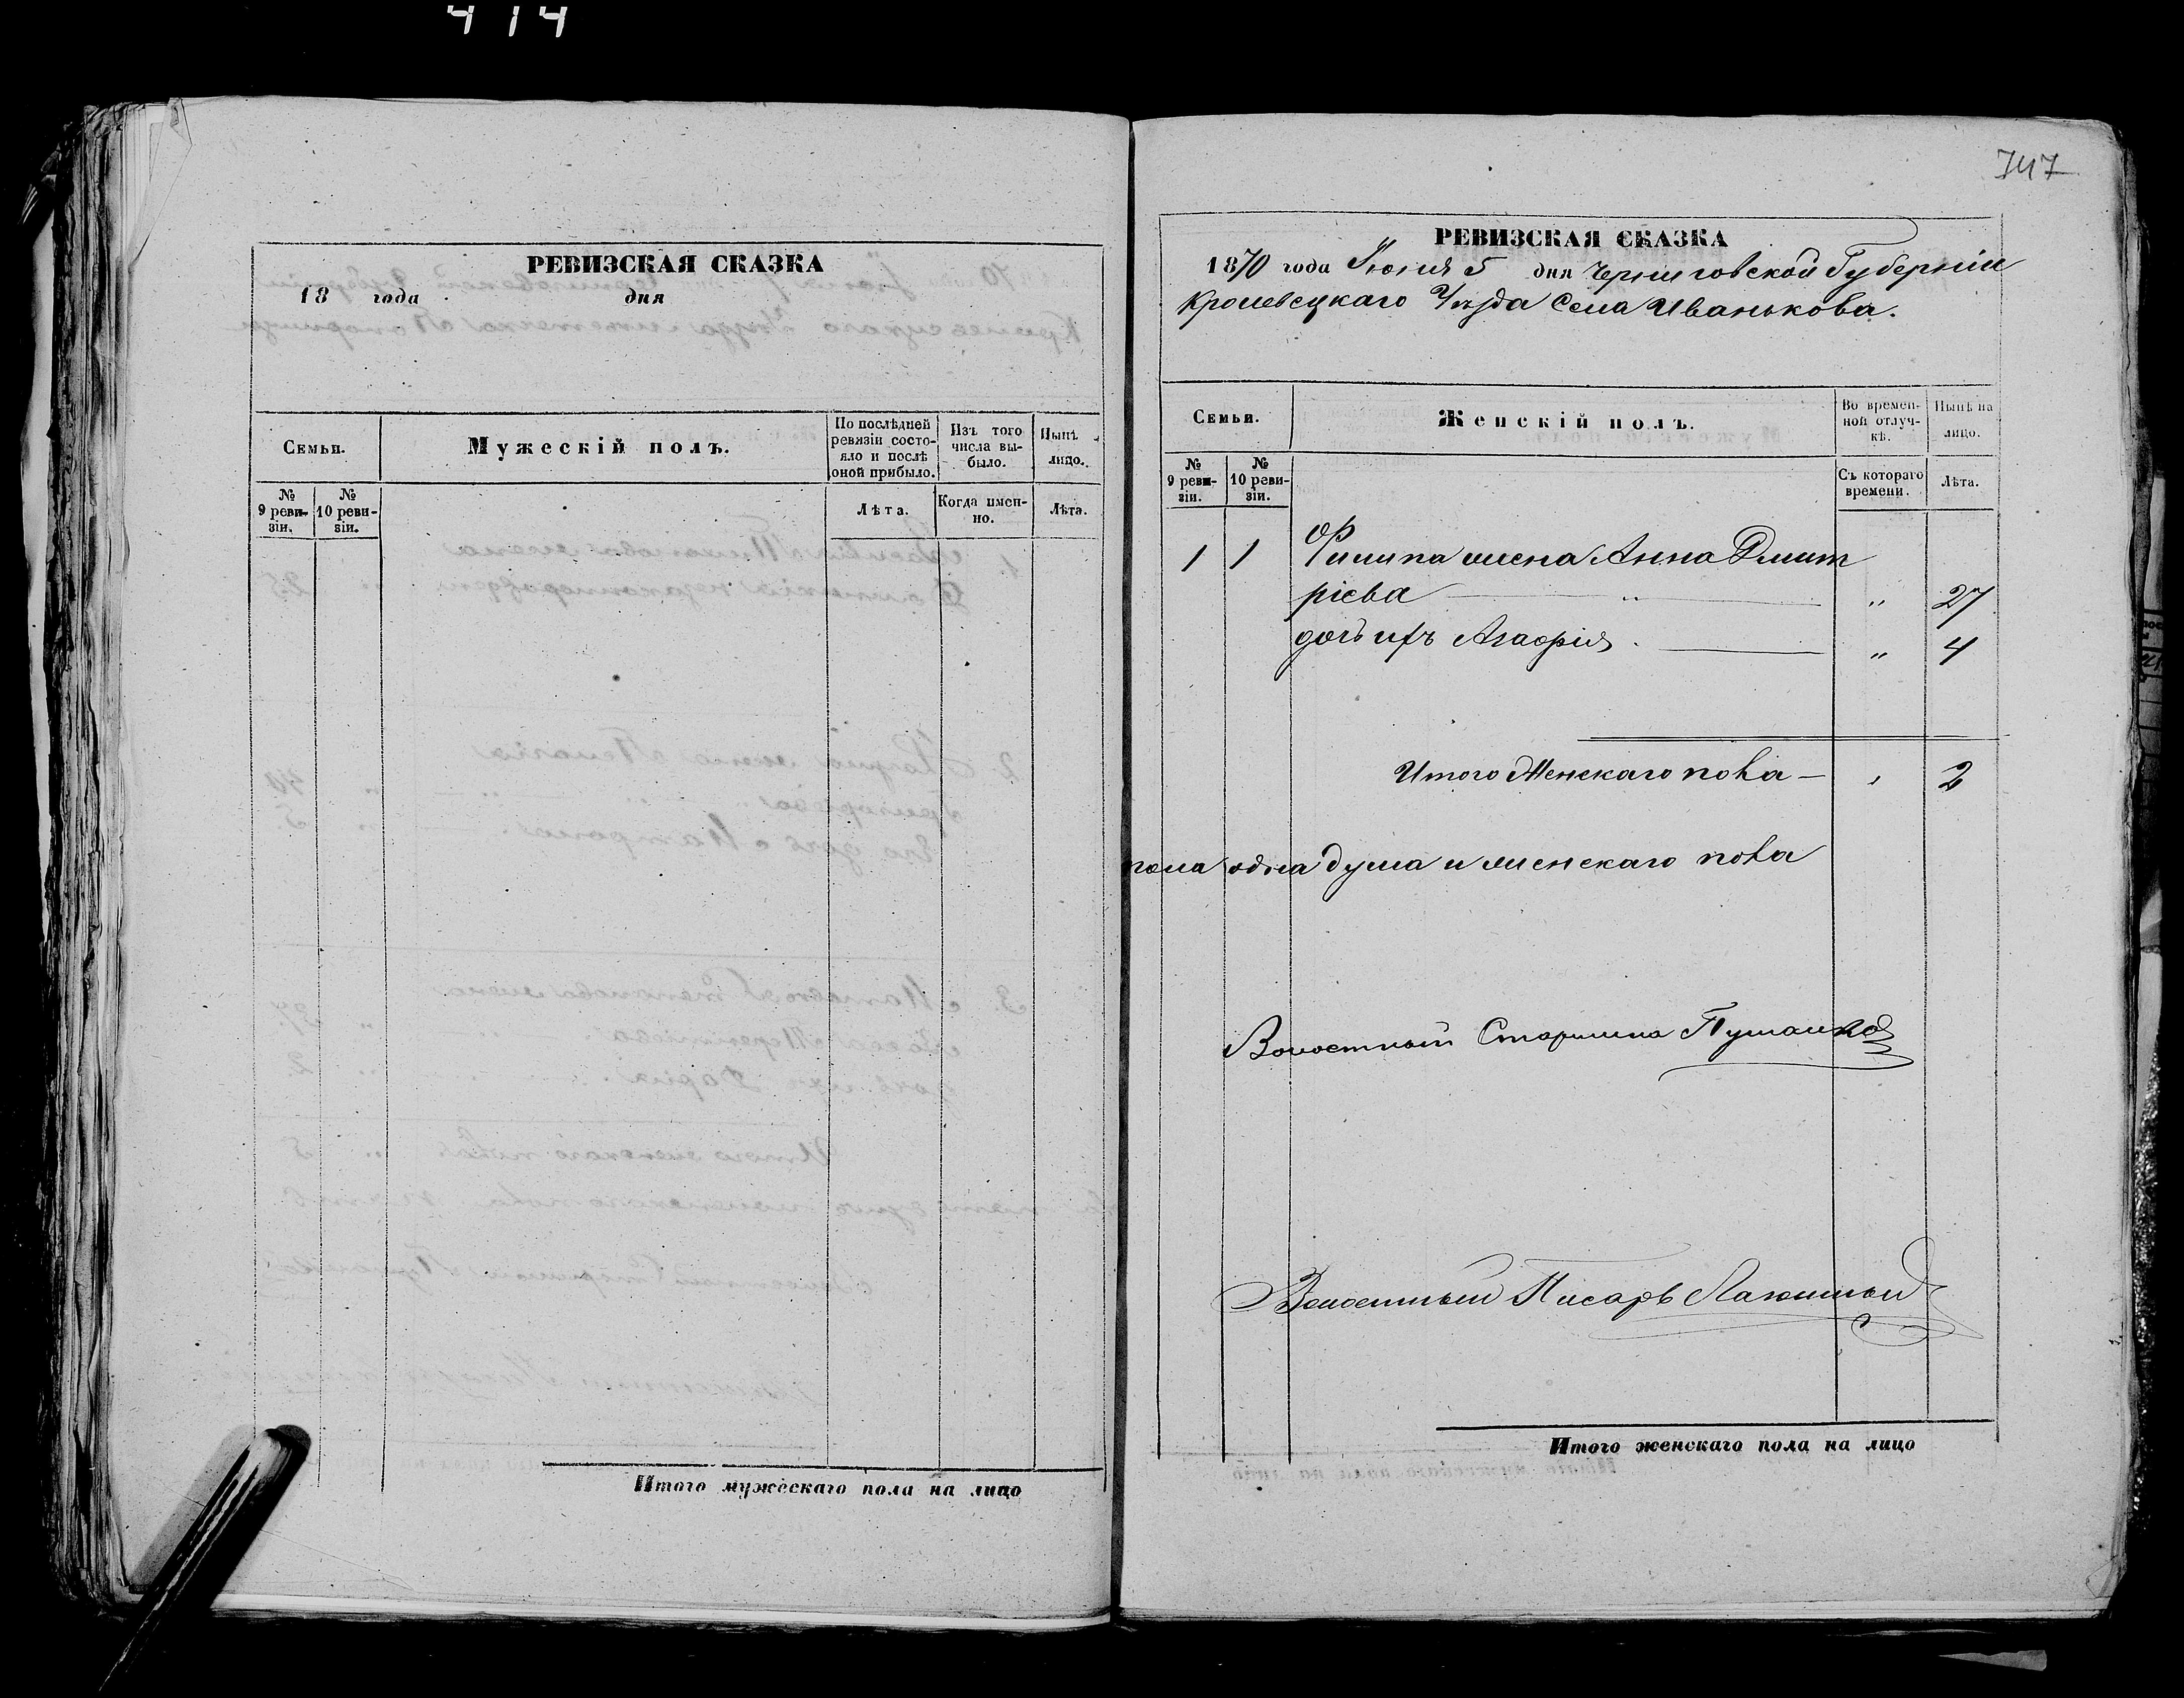 414
РЕВИЗСКАЯ СКАЗКА
18 года дня
Семьи.
Мужескій полъ.
По послѣдней ревизіи состояло и послѣ оной прибыло.
Изъ того числа выбыло.
Нынѣ на лицо.
№ 9 ревизіи.
№ 10 ревизіи.
Лѣта.
Когда именно.
Лѣта.
Итого мужескаго пола на лицо
747
РЕВИЗСКАЯ СКАЗКА
1870 года Іюня 5 дня Черниговской Губерніи
Кролевецкаго Уѣзда Села Иванькова.
Семьи.
Женскій полъ.
Во временной отлучкѣ.
Нынѣ на лицо.
№ 9 ревизіи.
№ 10 ревизіи.
Съ котораго времени.
Лѣта.
1 1 Филипа жена Анна Дмит
ріева " " 27
дочь ихъ Агафія " 4
Итого Женскаго пола — " 2
пола одна душа и женскаго пола
Волостный Старшина
Волостный Писарь
Итого женскаго пола на лицо